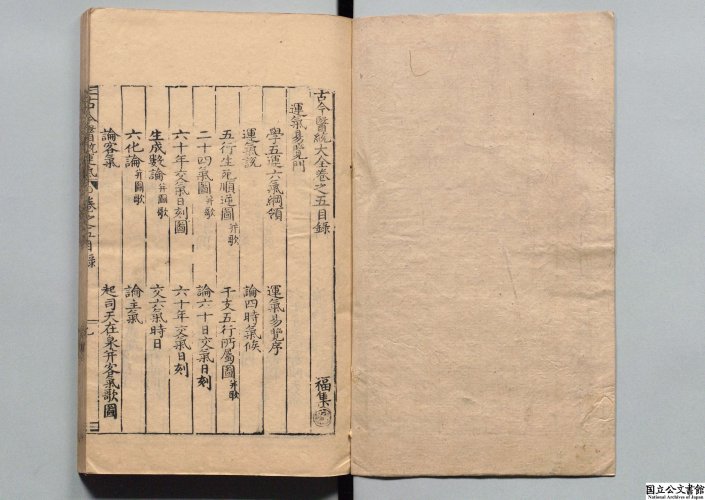 古今醫統大全卷之五目錄
運氣易覽門
福集
學五運六氣綱領
運氣易覽序
運氣說
論四時氣候
五行生死順逆圖并歌
干支五行所屬圖并歌
二十四氣圖并歌
論六十日交氣日刻
六十年交氣日刻圖
六十年交氣日刻
生成數論并圖歌
交六氣時日
六化論并圖歌
論主氣
論客氣
起司天在泉并客氣歌圖
古今醫統 卷之五目錄
国立公文書館
National Archives of Japan